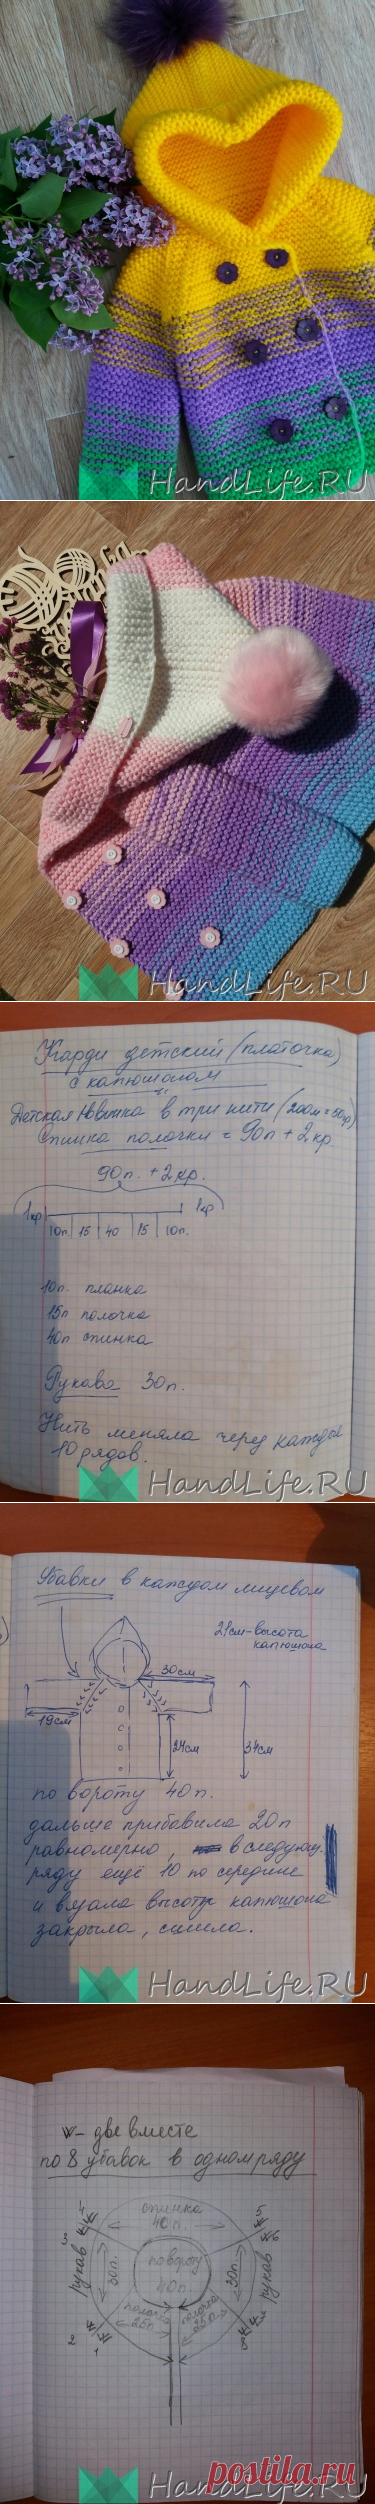 HandLife.RU
HandLife.RU
Карди детский (платочка)
с капюшоном
Детская Новинка в три нити (200м = 50гр)
Спинка полочки = 90п + 2кр.
90п. + 2кр.
1кр 1кр
10п. 15 40 15 10п.
10п. планка
15п полочка
40п спинка
Рукава 30п.
Нить меняла через каждые
10 рядов.
HandLife.RU
Убавки в каждом лицевом
21см-высота
капюшона
30см
19см
24см
34см
по вороту 40п.
дальше прибавила 20п
равномерно, в следующ.
ряду ещё 10 по середине
и вязала высоту капюшона
закрыла, сшила.
HandLife.RU
- две вместе
по 8 убавок в одном ряду
спинка
40п.
5
6
3
рукав
30п.
по вороту
40п.
30п.
рукав
полочка
25п.
полочка
25п.
2
1
8
HandLife.RU
postila.ru